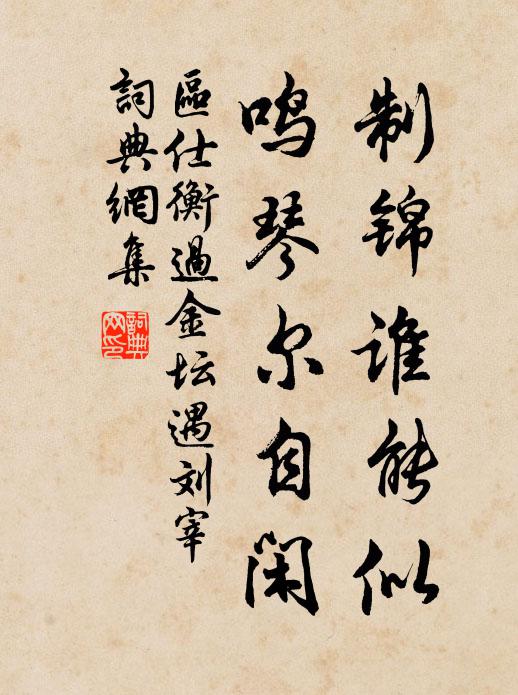 制锦谁能似
鸣琴尔自闲
區仕衡過金坛遇刘宰
詞典網集
詞典
网印